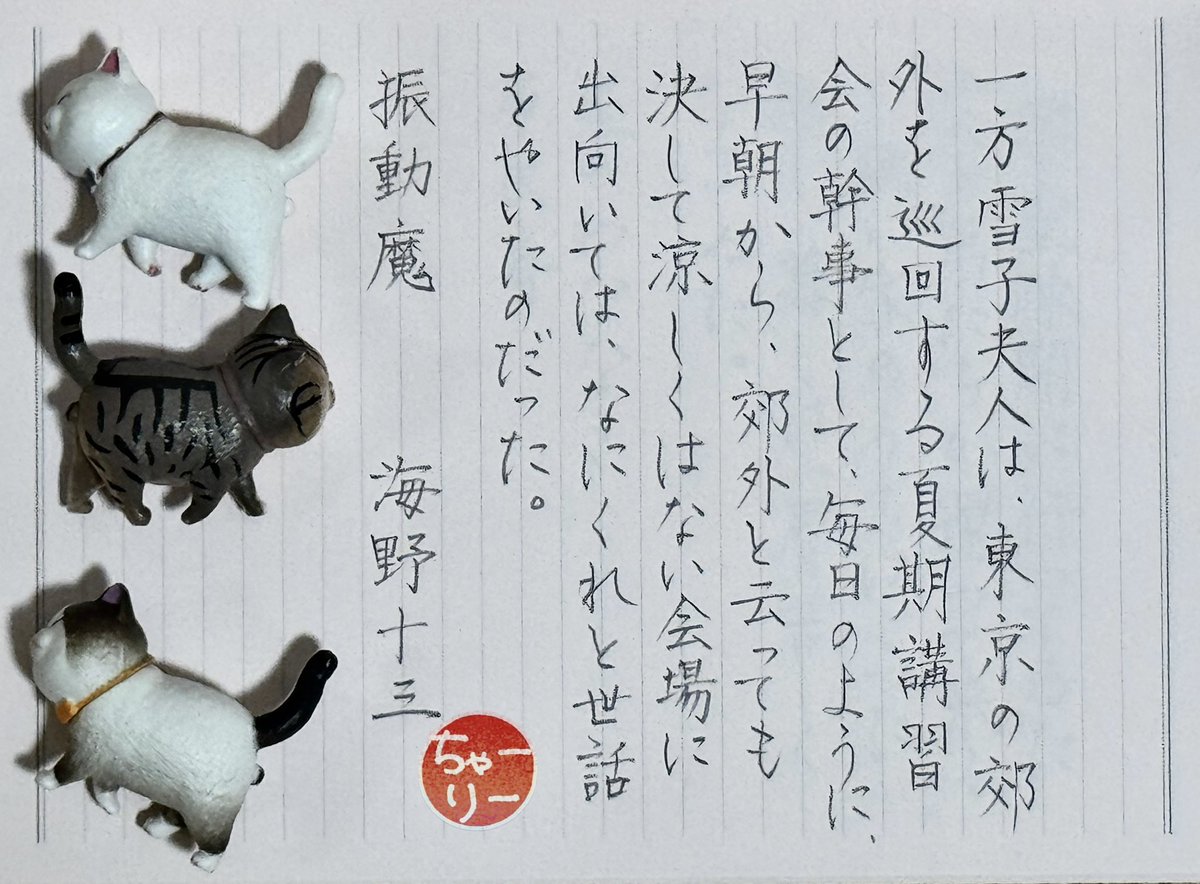 一方雪子夫人は、東京の郊
外を巡回する夏期講習
会の幹事として、毎日のように、
早朝から、郊外と云っても
決して涼しくはない会場に
出向いては、なにくれと世話
をやいたのだった。
振動魔 海野十三
ちゃー
りー